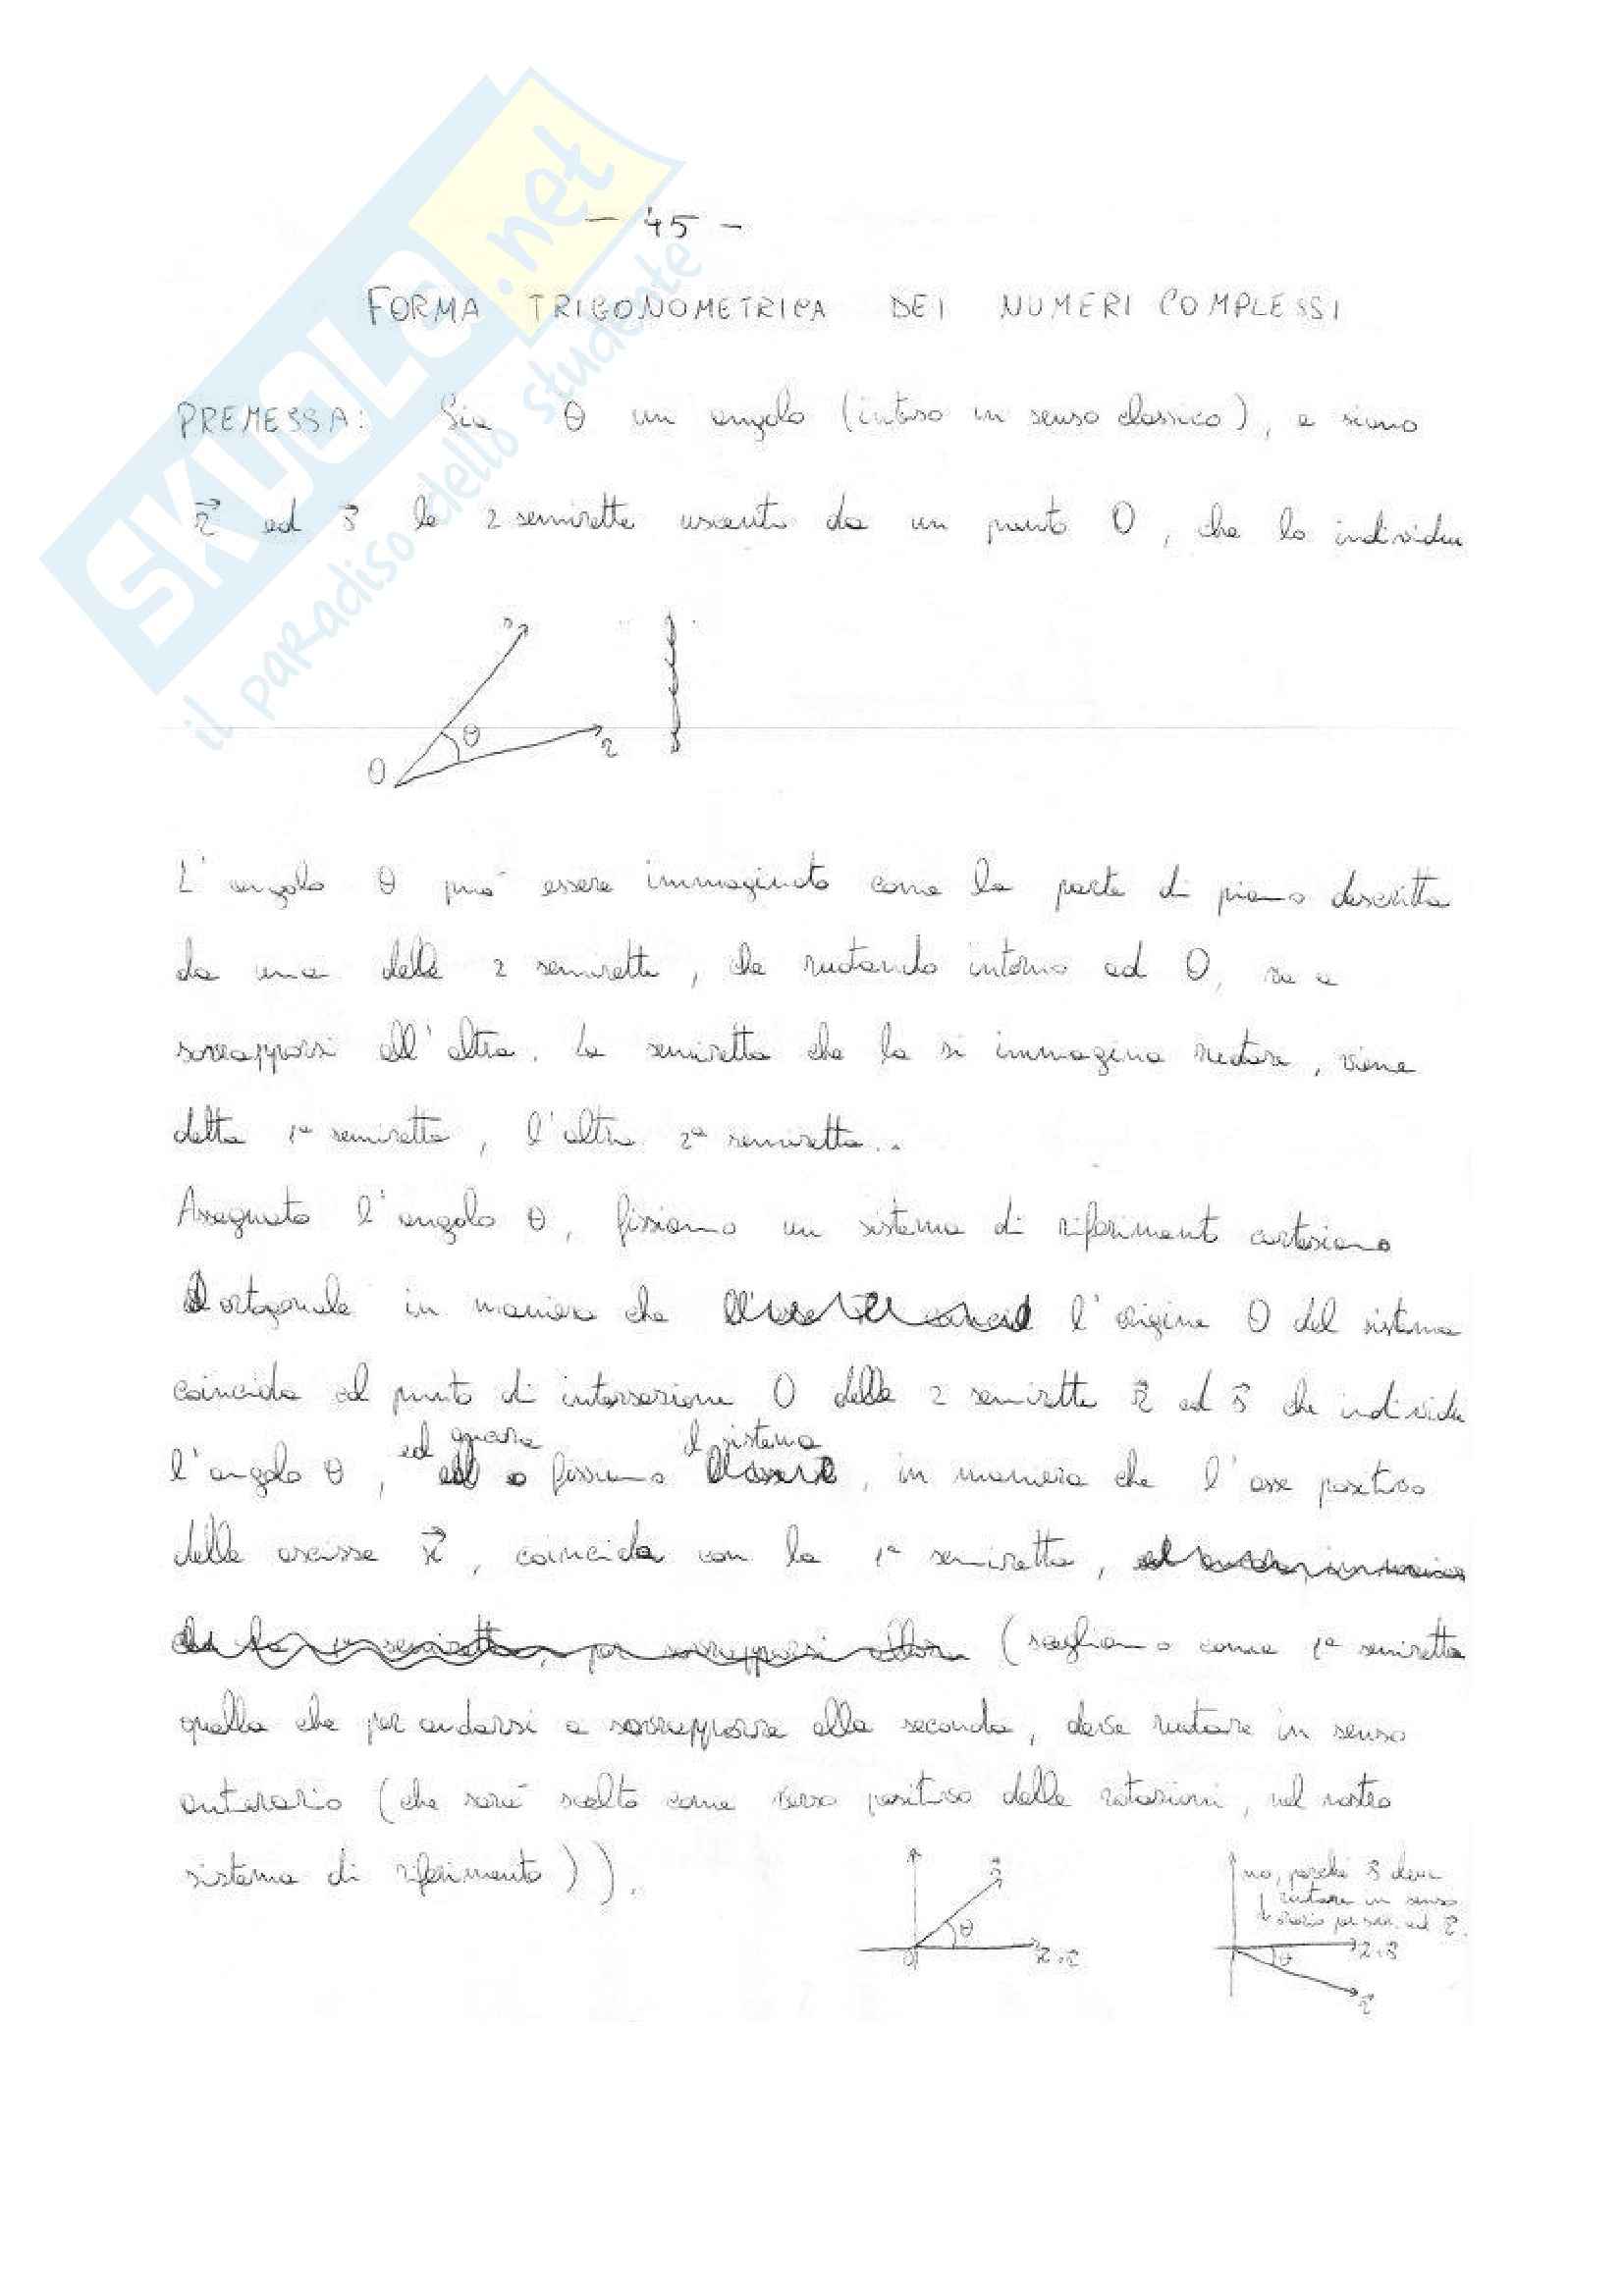 - 45 -
FORMA TRIGONOMETRICA DEI NUMERI COMPLESSI
PREMESSA: Sia θ un angolo (inteso in senso classico), e siano
r⃗ ed s⃗ le 2 semirette uscenti da un punto O, che lo individu
s
θ
O
r
L'angolo θ può essere immaginato come la parte di piano descritta
da una delle 2 semirette, che ruotando intorno ad O, va a
sovrapporsi all'altra. La semiretta che la si immagina ruotare, viene
detta 1ª semiretta, l'altra 2ª semiretta..
Assegnato l'angolo θ, fissiamo un sistema di riferimento cartesiano
ortogonale in maniera che l'origine O del sistema
coincida col punto di intersezione O delle 2 semirette r⃗ ed s⃗ che individu
ed il sistema
l'angolo θ, fissiamo, in maniera che l'asse positivo
delle ascisse x⃗, coincida con la 1ª semiretta,
(scegliamo come 1ª semiretta
quella che per andarsi a sovrapporre alla seconda, deve ruotare in senso
antiorario (che sarà scelto come verso positivo delle rotazioni, nel nostro
sistema di riferimento)).
s⃗
θ
O
no, perché s⃗ deve
ruotare in senso
orario per ad r⃗.
θ
r⃗
SKUOLA.net
il paradiso dello studente